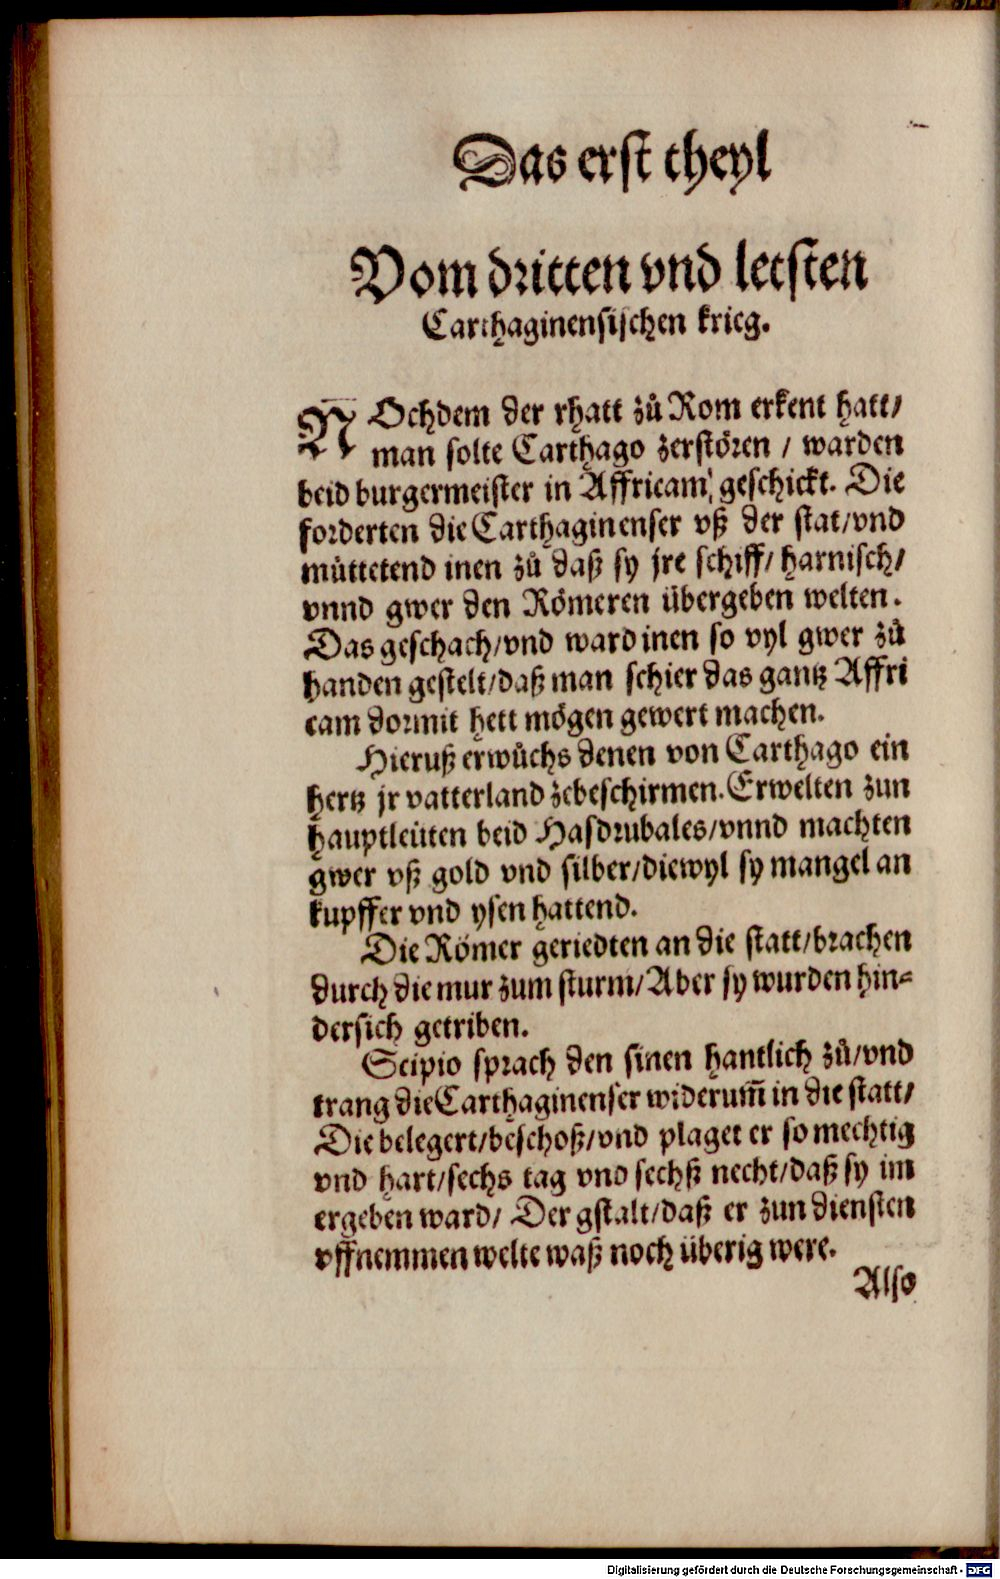 Das erst theyl
Vom dritten vnd letsten
Carthaginensischen krieg.
NOchdem der rhatt zů Rom erkent hatt/
man solte Carthago zerstören / warden
beid burgermeister in Affricam geschickt. Die
forderten die Carthaginenser vß der stat/vnd
mütteted inen zů daß sy jre schiff/ harnisch/
vnnd gwer den Römeren übergeben welten.
Das geschach/vnd ward inen so vyl gwer zů
handen gestelt/daß man schier das gantz Affri
cam dormit hett mögen gewert machen.
Hieruß erwůchs denen von Carthago ein
hertz jr vatterland zebeschirmen. Erwelten zun
hauptleüten beid Hasdrubales/vnnd machten
gwer vß gold vnd silber/diewyl sy mangel an
kupffer vnd ysen hattend.
Die Römer geriedten an die statt/brachen
durch die mur zum sturm/Aber sy wurden hin-
dersich getriben.
Scipio sprach den sinen hantlich zů/vnd
trang die Carthaginenser widerum̃ in die statt/
Die belegert/beschoß/vnd plaget er so mechtig
vnd hart/sechs tag vnd sechß necht/daß sy im
ergeben ward/ Der gstalt/daß er zun diensten
vffnemmen welte waß noch überig were.
Also
Digitalisierung gefördert durch die Deutsche Forschungsgemeinschaft - DFG